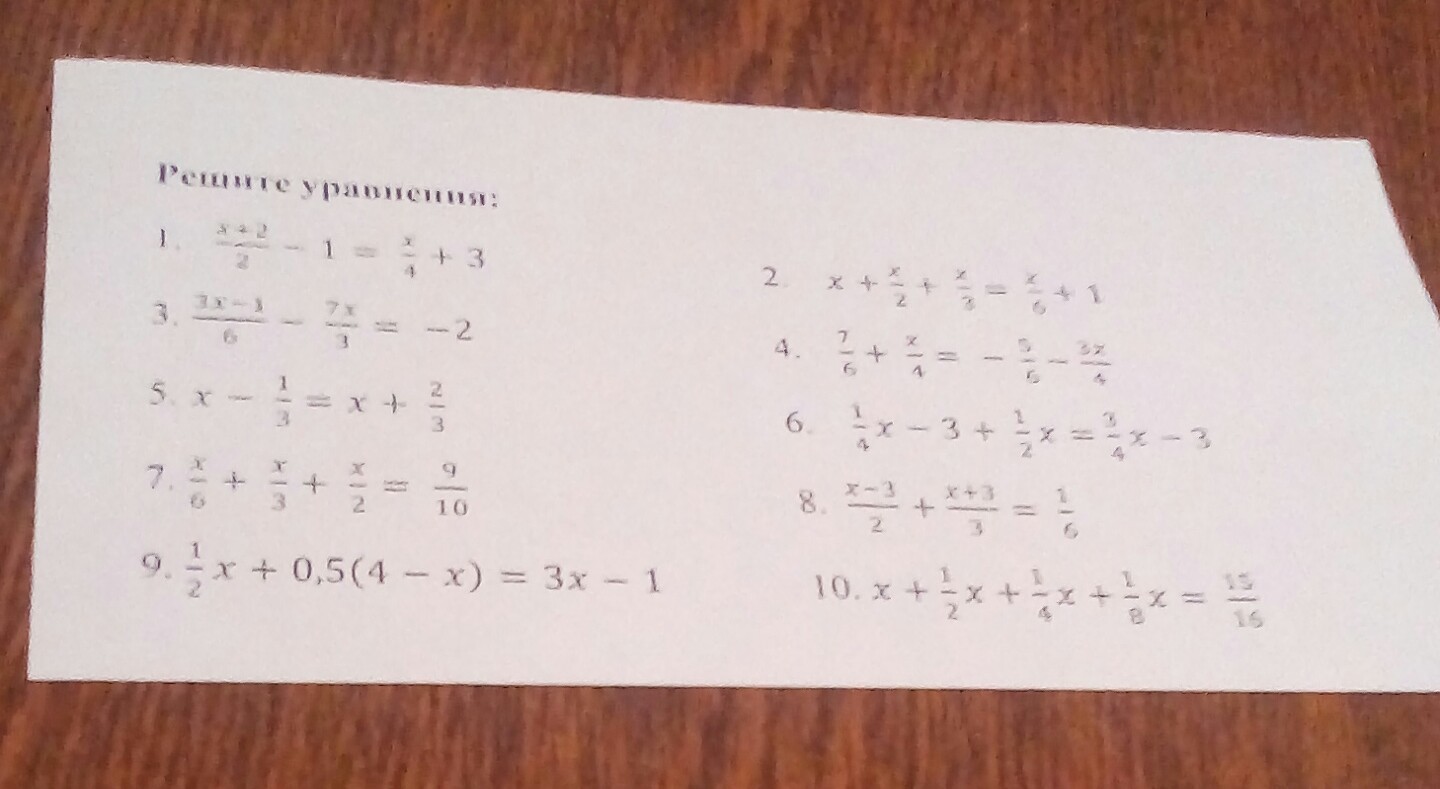 Решите уравнения:
1. \frac{x+2}{2} - 1 = \frac{x}{4} + 3
2. x + \frac{x}{2} + \frac{x}{3} = \frac{x}{6} + 1
3. \frac{3x-1}{6} - \frac{7x}{3} = -2
4. \frac{7}{6} + \frac{x}{4} = - \frac{5}{6} - \frac{3x}{4}
5. x - \frac{1}{3} = x + \frac{2}{3}
6. \frac{1}{4}x - 3 + \frac{1}{2}x = \frac{3}{4}x - 3
7. \frac{x}{6} + \frac{x}{3} + \frac{x}{2} = \frac{9}{10}
8. \frac{x-3}{2} + \frac{x+3}{3} = \frac{1}{6}
9. \frac{1}{2}x + 0,5(4 - x) = 3x - 1
10. x + \frac{1}{2}x + \frac{1}{4}x + \frac{1}{8}x = \frac{15}{16}